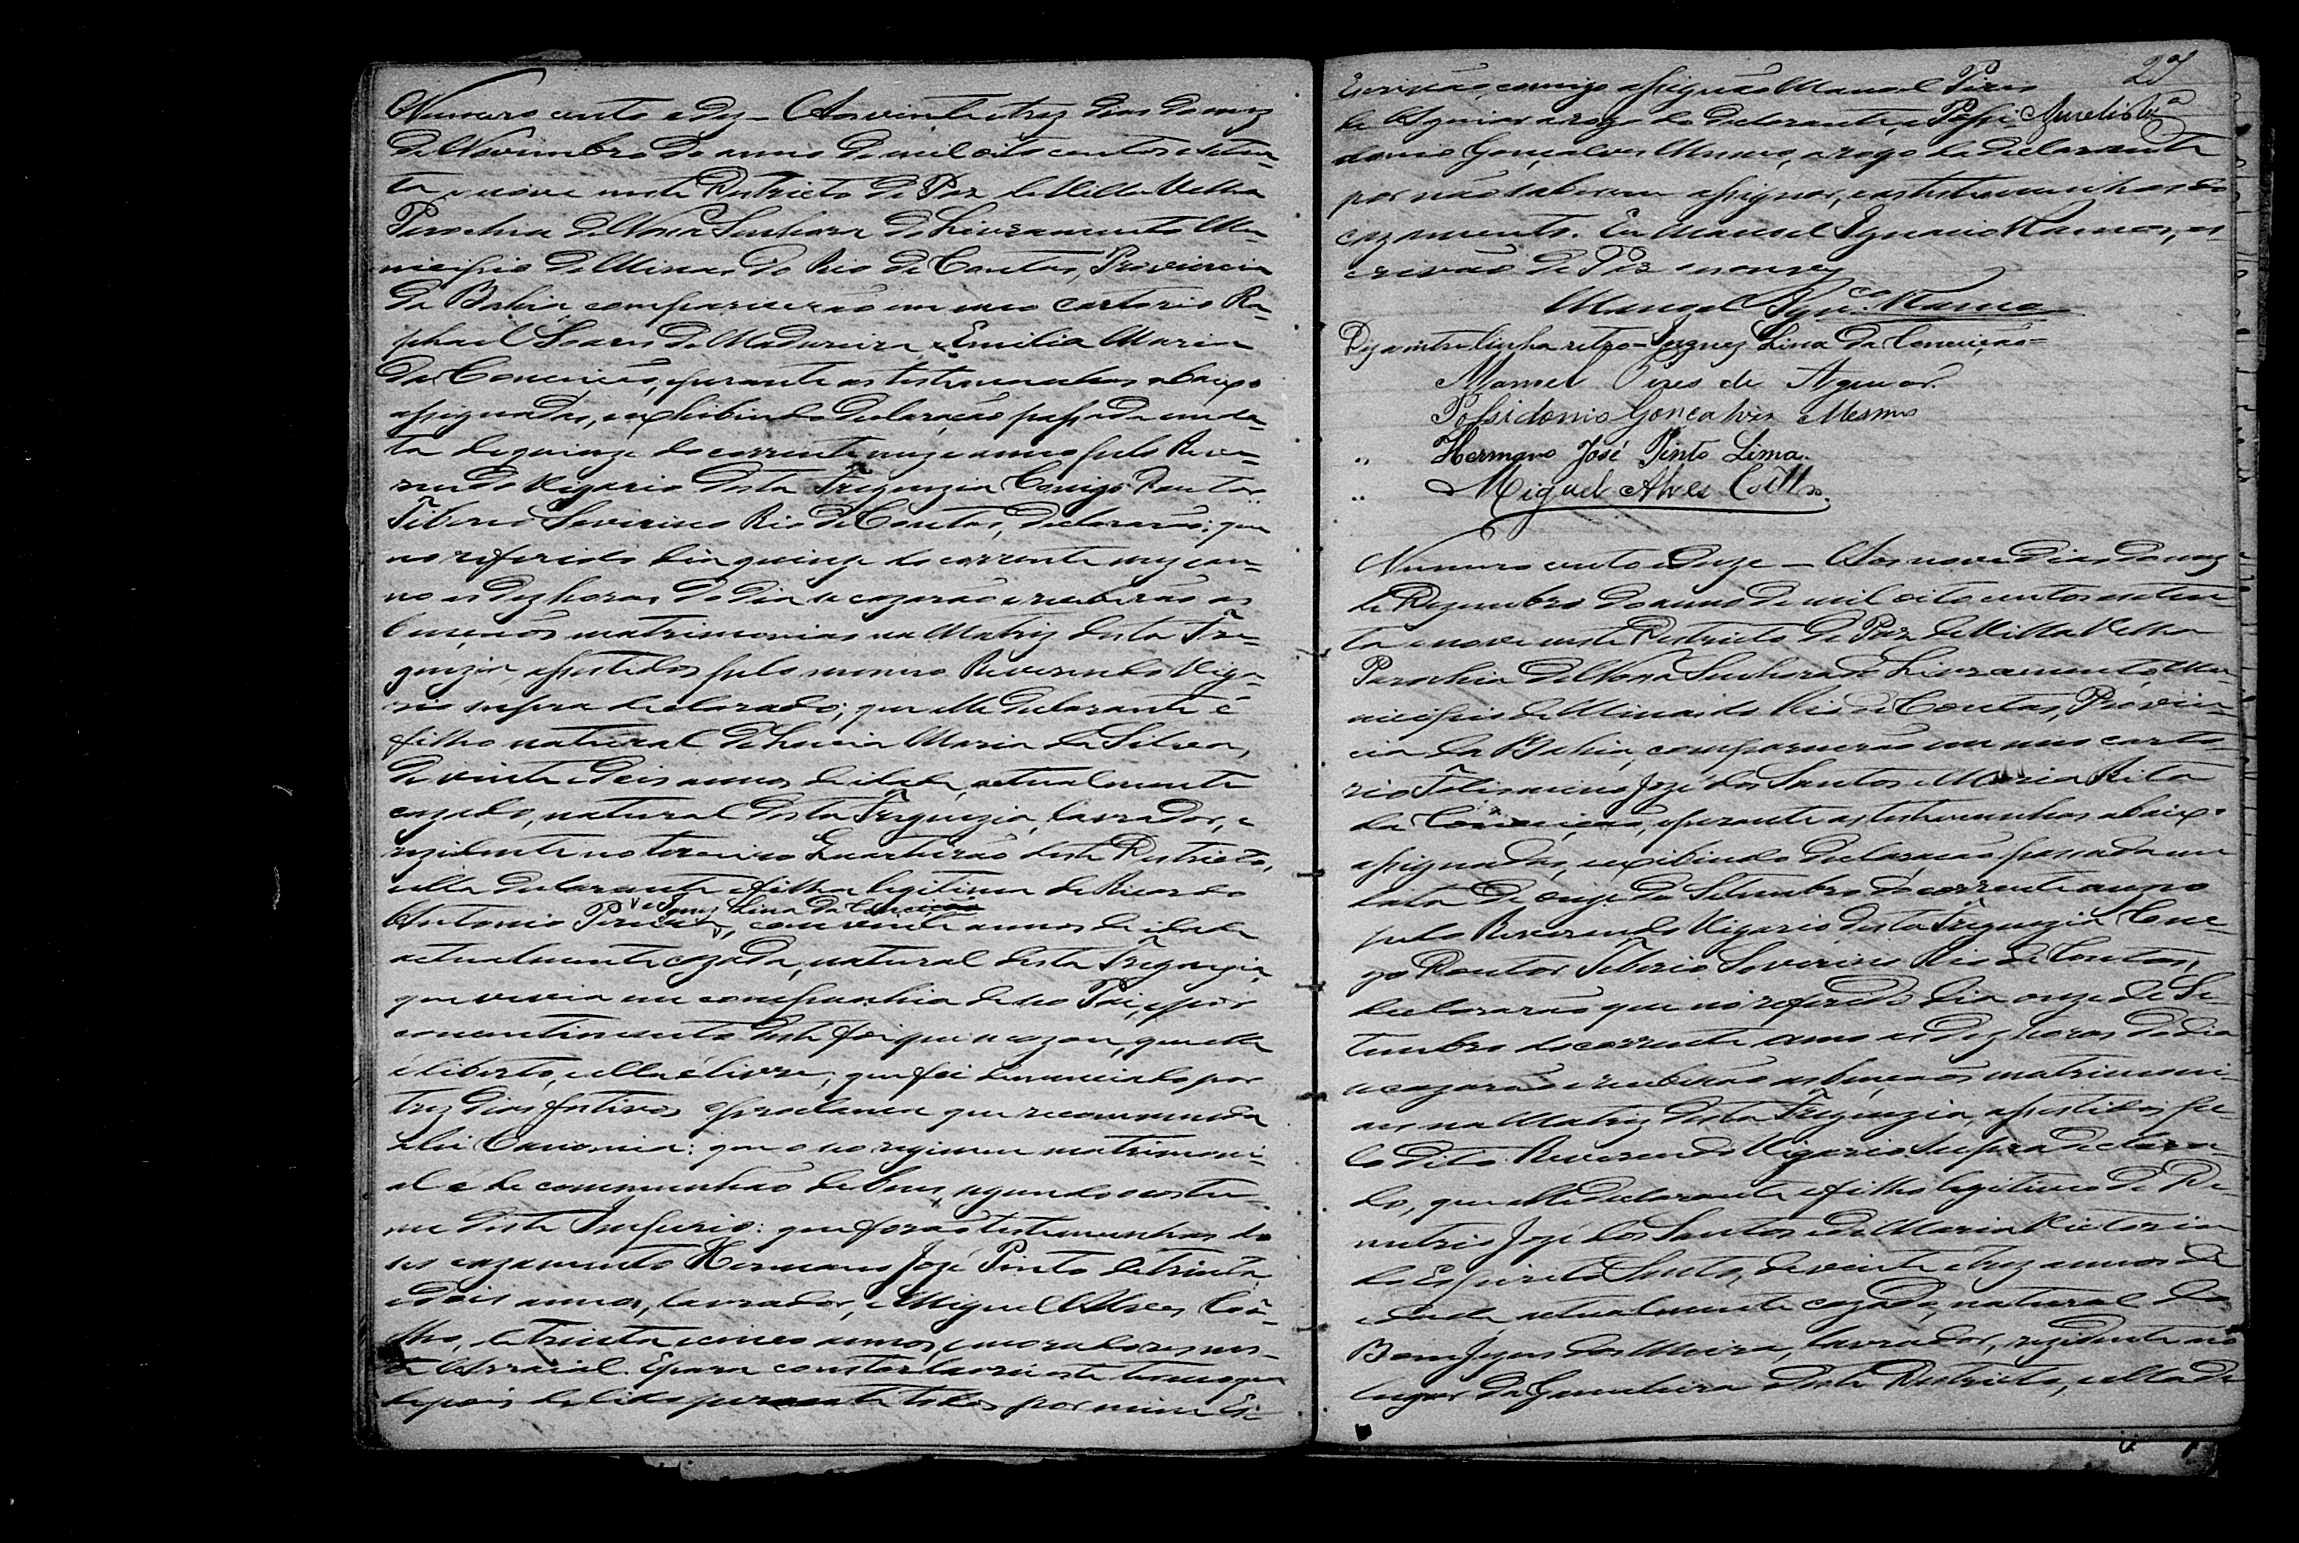 Numero cento e dez - Aos vinte e trez dias do mez
de Novembro do anno de mil oito centos e seten-
ta e nove neste Districto de Paz de Villa Velha
Parochia de Nossa Senhora do Livramento Mu-
nicipio de Minas do Rio de Contas, Provincia
da Bahia, comparecerão em meo cartorio Ra-
phael Soares de Madureira e Emilia Maria
da Conceição, perante as testemunhas abaixo
assignadas, exhibindo declaração passada em da-
ta de quinze do corrente mez e anno pelo Reve-
rendo Vigario desta Freguezia Conego Doutor
Tiberio Severino Rio de Contas, declararão: que
no referido dia quinze do corrente mez e an-
no as dez horas do dia se cazarão e receberão as
bençãos matrimoniaes na Matriz desta Fre-
guezia assistidos pelo mesmo Reverendo Viga-
rio supra declarado; que elle declarante é
filho natural de Lucia Maria da Silva,
de vinte e dois annos de idade, actualmente
cazado, natural desta Freguezia, lavrador, e
rezidente no terceiro Quarteirão deste Districto,
e ella declarante é filha legitima de Ricardo
e Ignez Lina da Conceição
Antonio Pereira, com vinte annos de idade
actualmente cazada, natural desta Freguezia,
que vivia em companhia de seo Pai, e por
concentimento deste foi que se cazou, que elle
é liberto, e ella é livre; que foi denunciado por
trez dias festivos o proclama que recommenda
a lei Canonica: que o seo regimen matrimoni-
al é de communhão de bens, segundo o costu-
me deste Imperio: que forão testemunhas do
seo cazamento Hermano Jozé Pinto de trinta
e dois annos, lavrador, e Miguel Alves Coê-
lho, de trinta e cinco annos, moradores nes-
te Arraial. E para constar lavrei este termo que
depois de lido perante todos por mim Es-
27
Escrivão, comigo assignão Manoel Pires
de Aguiar a rogo do declarante, e Possi
donio Gonçalves Mesmo, a rogo da declarante
por não saberem assignar, e as testemunhas do
cazamento. Eu Manoel Ignacio Ramos, es-
crivão de Paz escrevy
Manoel Ign.co Ramos
Diz a entre-linha retro = Ignez Lina da Conceição =
Manoel Pires de Aguiar.
Possidonio Gonçalves Mesmo
" Hermano José Pinto Lima.
" Miguel Alves Coêlho.
Numero cento e onze - Aos nove dias do mez
de Dezembro do anno de mil oito centos e seten-
ta e nove neste Districto de Paz de Villa Velha
Parochia de Nossa Senhora do Livramento, Mu-
nicipio de Minas do Rio de Contas, Provin-
cia da Bahia, comparecerão em meo carto-
rio Felismino Jozé dos Santos e Maria Rita
da Conceição, perante as testemunhas abaixo
assignadas, exhibindo declaração passada em
data de onze de Setembro do corrente anno
pelo Reverendo Vigario desta Freguezia Cone-
go Doutor Tiberio Severino Rio de Contas,
declararão que no referido dia onze de Se-
tembro do corrente anno as dez horas do dia
se cazarão e receberão as bençãos matrimoni-
aes na Matriz desta Freguezia, assistidos pe-
lo dito Reverendo Vigario supra declara-
do, que elle declarante é filho legitimo de De-
metrio Jozé dos Santos e de Maria Victoria
do Espirito Santo, de vinte e trez annos de
idade, actualmente cazado, natural do
Bom Jezus dos Meira, lavrador, rezidente no
lugar da Gamelleira deste Districto, e ella de